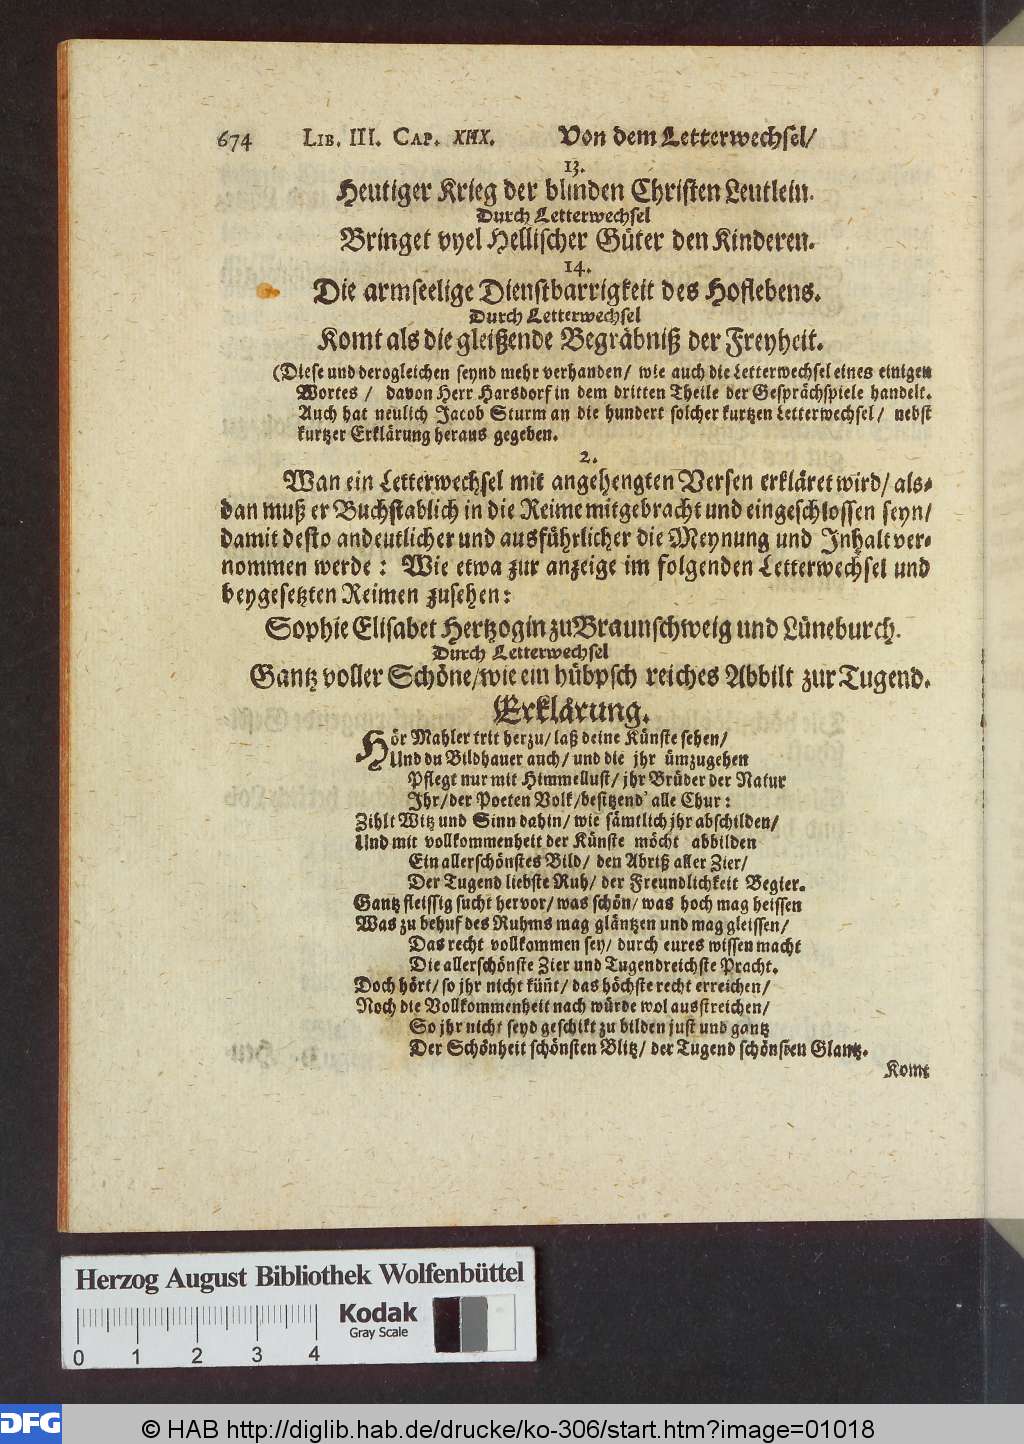 674 LIB. III. CAP. XIIX. Von dem Letterwechsel/
13.
Heutiger Krieg der blinden Christen Leutlein.
Durch Letterwechsel
Bringet vyel Hellischer Güter den Kinderen.
14.
Die armseelige Dienstbarrigkeit des Hoflebens.
Durch Letterwechsel
Komt als die gleißende Begräbniß der Freyheit.
(Diese und derogleichen seynd mehr verhanden/ wie auch die Letterwechsel eines einigen
Wortes / davon Herr Harsdorf in dem dritten Theile der Gesprächspiele handelt.
Auch hat neulich Jacob Sturm an die hundert solcher kurtzen Letterwechsel/ nebst
kurtzer Erklärung heraus gegeben.
2.
Wan ein Letterwechsel mit angehengten Versen erkläret wird/ als-
dan muß er Buchstablich in die Reime mitgebracht und eingeschlossen seyn/
damit desto andeutlicher und ausführlicher die Meynung und Inhalt ver-
nommen werde: Wie etwa zur anzeige im folgenden Letterwechsel und
beygesetzten Reimen zusehen:
Sophie Elisabet Hertzogin zu Braunschweig und Lüneburch.
Durch Letterwechsel
Gantz voller Schöne/wie ein hübpsch reiches Abbilt zur Tugend.
Erklärung.
Hör Mahler trit herzu/ laß deine Künste sehen/
Und du Bildhauer auch/ und die jhr ümzugehen
Pflegt nur mit Himmellust/ jhr Brüder der Natur
Ihr/ der Poeten Volk/ besitzend' alle Chur:
Zihlt Witz und Sinn dahin/ wie sämtlich jhr abschilden/
Und mit vollkommenheit der Künste möcht abbilden
Ein allerschönstes Bild/ den Abriß aller Zier/
Der Tugend liebste Ruh/ der Freundlichkeit Begier.
Gantz fleissig sucht hervor/ was schön/ was hoch mag heissen
Was zu behuf des Ruhms mag gläntzen und mag gleissen/
Das recht vollkommen sey/ durch eures wissen macht
Die allerschönste Zier und Tugendreichste Pracht.
Doch hört/ so jhr nicht küñt/ das höchste recht erreichen/
Noch die Vollkommenheit nach würde wol ausstreichen/
So jhr nicht seyd geschikt zu bilden just und gantz
Der Schönheit schönsten Blitz/ der Tugend schönsten Glantz.
Komt
Herzog August Bibliothek Wolfenbüttel
Kodak
Gray Scale
0 1 2 3 4
DFG
© HAB http://diglib.hab.de/drucke/ko-306/start.htm?image=01018